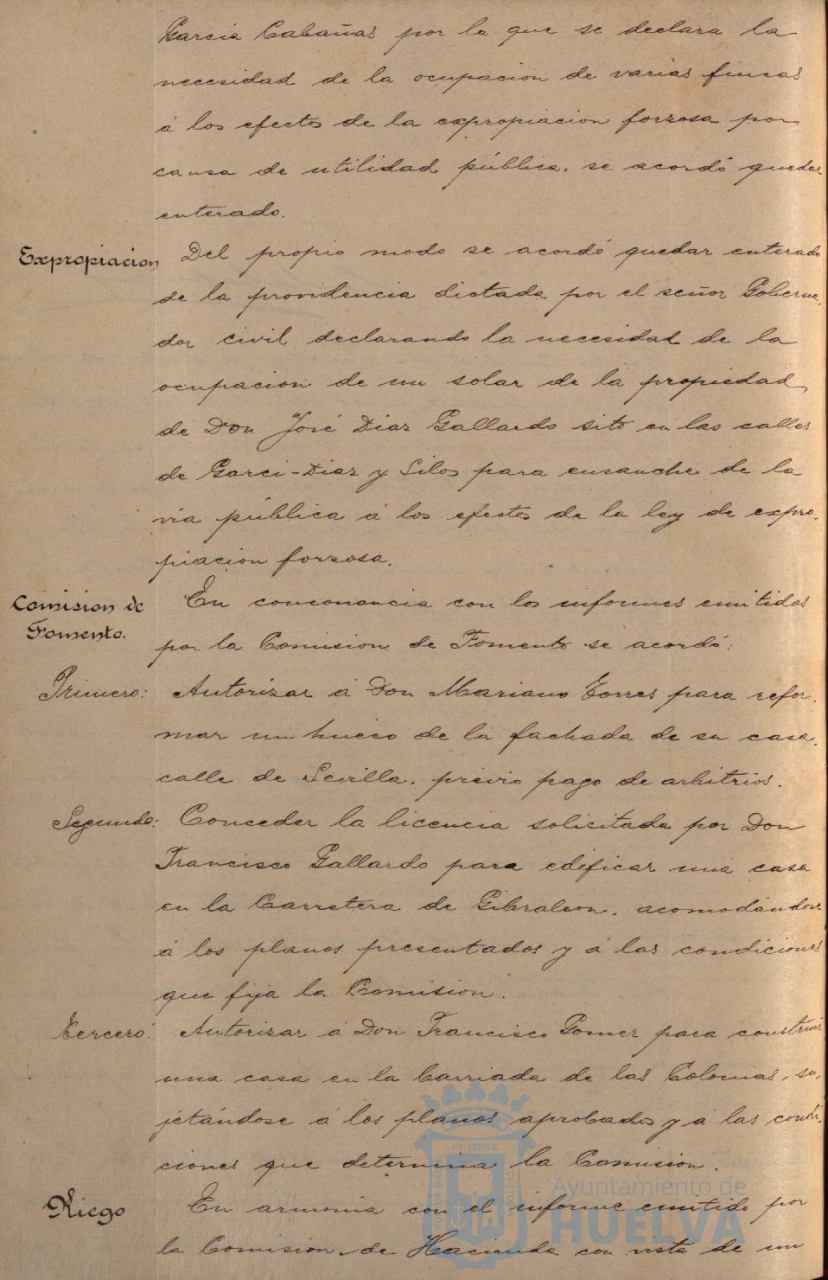 Garcia Cabañas por la que se declara la
necesidad de la ocupacion de varias fincas
á los efectos de la expropiacion forzosa por
causa de utilidad pública, se acordó quedar
enterado.
Expropiacion Del propio modo se acordó quedar enterado
de la providencia dictada por el señor Goberna-
dor civil declarando la necesidad de la
ocupacion de un solar de la propiedad
de Don José Diaz Gallardo sito en las calles
de Garci-Diaz y Silos para ensanche de la
via pública á los efectos de la ley de expro-
piacion forzosa.
Comision de Fomento. En consonancia con los informes emitidos
por la Comision de Fomento se acordó:
Primero: Autorizar á Don Mariano Torres para refor-
mar un hueco de la fachada de su casa,
calle de Sevilla, previo pago de arbitrios.
Segundo: Conceder la licencia solicitada por Don
Francisco Gallardo para edificar una casa
en la Carretera de Gibraleon, acomodándose
á los planos presentados y á las condiciones
que fija la Comision.
Tercero: Autorizar á Don Francisco Gomez para construir
una casa en la barriada de las Colonias, su-
jetándose á los planos aprobados y á las condi-
ciones que determina la Comision.
Riego En armonia con el informe emitido por
la Comision de Hacienda con vista de un
Ayuntamiento de
HUELVA